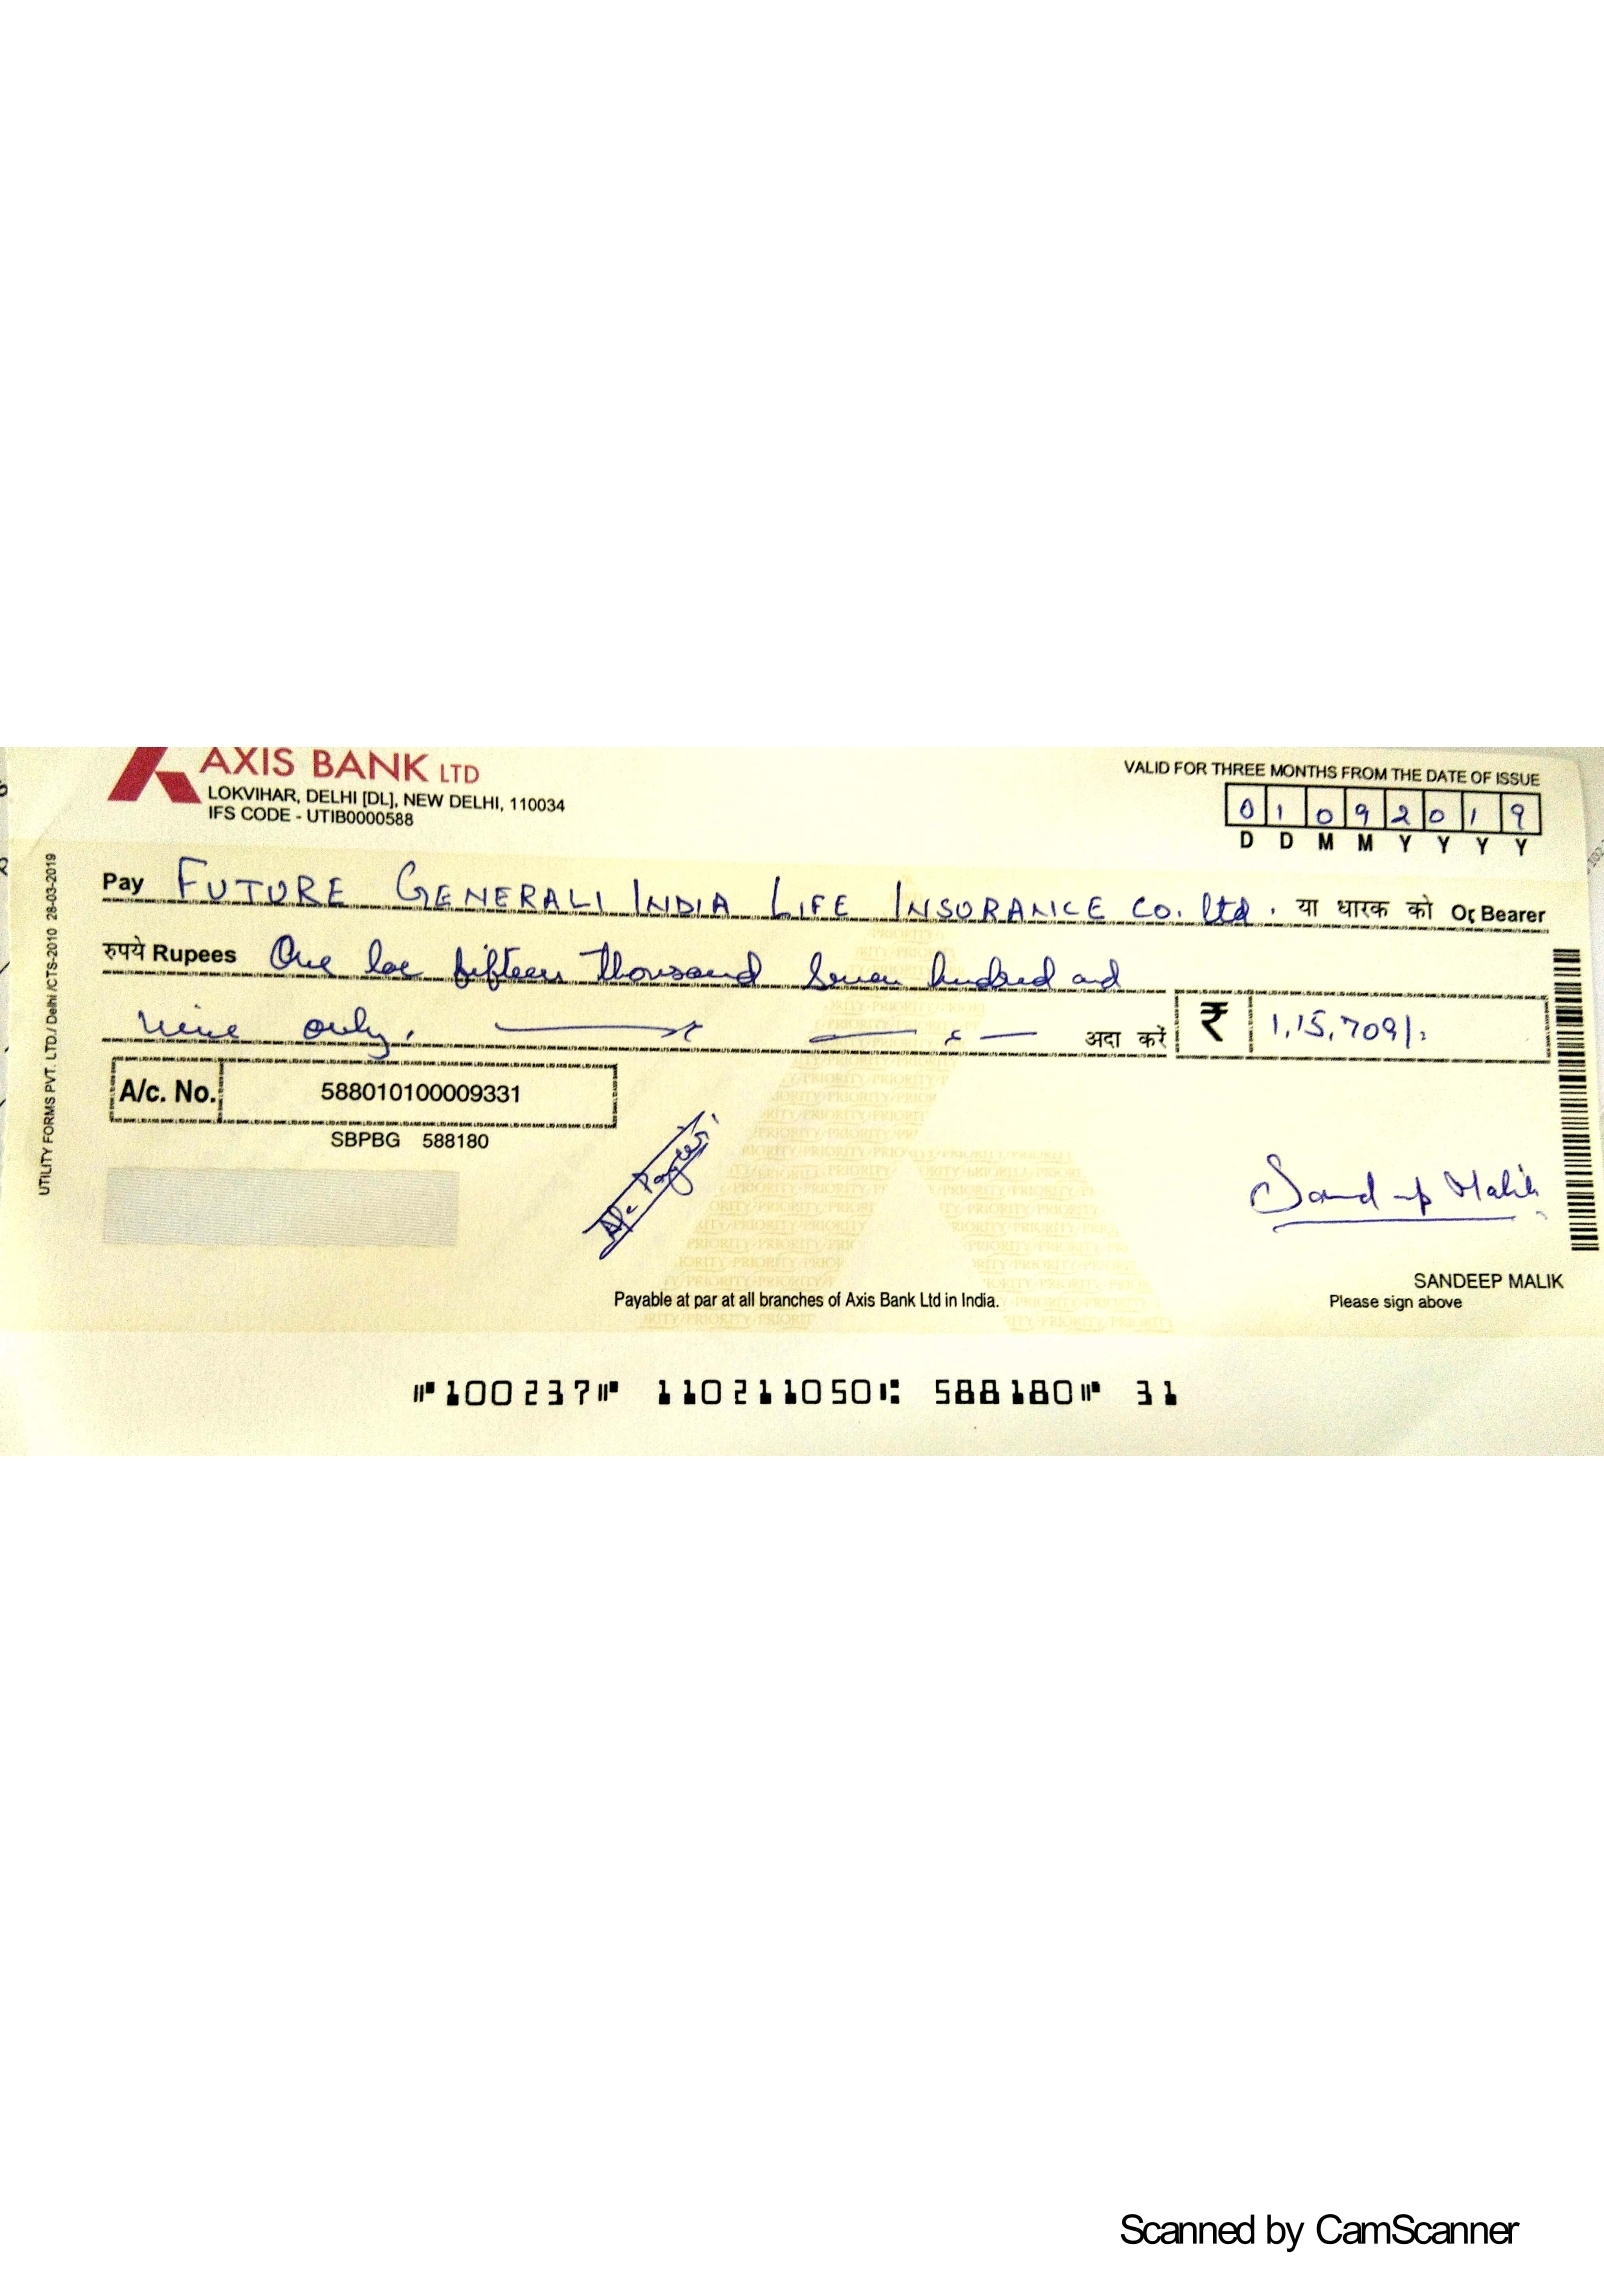 AXIS BANK LTD
LOKVIHAR, DELHI [DL], NEW DELHI, 110034
IFS CODE - UTIB0000588
VALID FOR THREE MONTHS FROM THE DATE OF ISSUE
0 1 0 9 2 0 1 9
D D M M Y Y Y Y
Pay FUTURE GENERALI INDIA LIFE INSURANCE CO. Ltd. या धारक को Or Bearer
रुपये Rupees One lac fifteen thousand seven hundred and
nine only. अदा करें ₹ 1,15,709/-
A/c. No. 588010100009331
SBPBG 588180
A/c Payee
Sandeep Malik
SANDEEP MALIK
Please sign above
Payable at par at all branches of Axis Bank Ltd in India.
UTILITY FORMS PVT. LTD./ Delhi /CTS-2010 28-03-2019
⑈100237⑈ 110211050⑆ 588180⑈ 31
Scanned by CamScanner